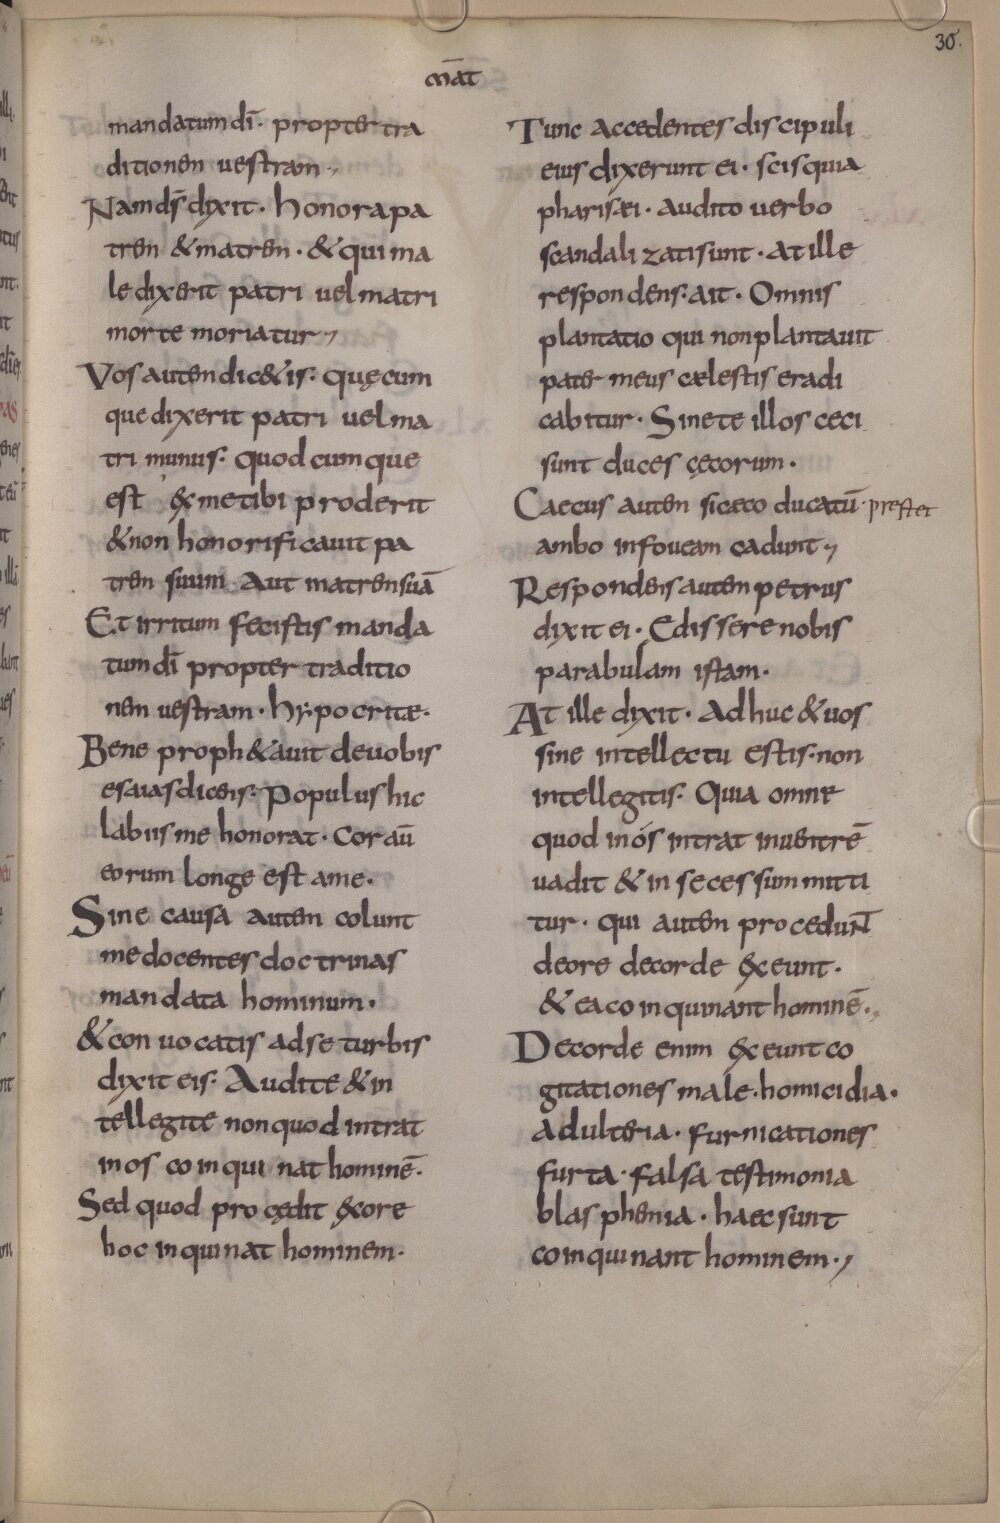 30.
m̄at
mandatum dī· propter tra
ditionem uestram
Nam ds̄ dixit· honora pa
trem & matrem· & qui ma
ledixerit patri uel matri
morte moriatur
Vos autem dic&is· quęcum
que dixerit patri uel ma
tri munus· quodcumque
est ex me tibi proderit
& non honorificauit pa
trem suum aut matrem suā
Et irritum fecistis manda
tum dī propter traditio
nem uestram· hypocritæ·
Bene proph&auit deuobis
esaias dicens· Populus hic
labiis me honorat· cor aū
eorum longe est ame·
Sine causa autem colunt
me docentes doctrinas
mandata hominum·
& conuocatis adse turbis
dixit eis· Audite & in
tellegite non quod intrat
in os coinquinat hominē·
Sed quod procędit exore
hoc inquinat hominem·
Tunc accedentes discipuli
eius dixerunt ei· scis quia
pharisæi· audito uerbo
scandalizati sunt· at ille
respondens· ait· Omnis
plantatio qui non plantauit
pater meus cælestis eradi
cabitur· Sinete illos ceci
sunt duces cęcorum·
Caecus autem si cæco ducatū· prestet
ambo in foueam cadunt
Respondens autem petrus
dixit ei· Edissere nobis
parabulam istam·
At ille dixit· Adhuc & uos
sine intellectu estis· non
intellegitis· Quia omne
quod in ós intrat inuentrē
uadit & in secessum mitti
tur· qui autem procedunt
deore decorde exeunt·
& ea coinquinant hominē·
Decorde enim exeunt co
gitationes male· homicidia·
adulteria· furnicationes
furta· falsa testimonia
blasphemia· haec sunt
coinquinant hominem·